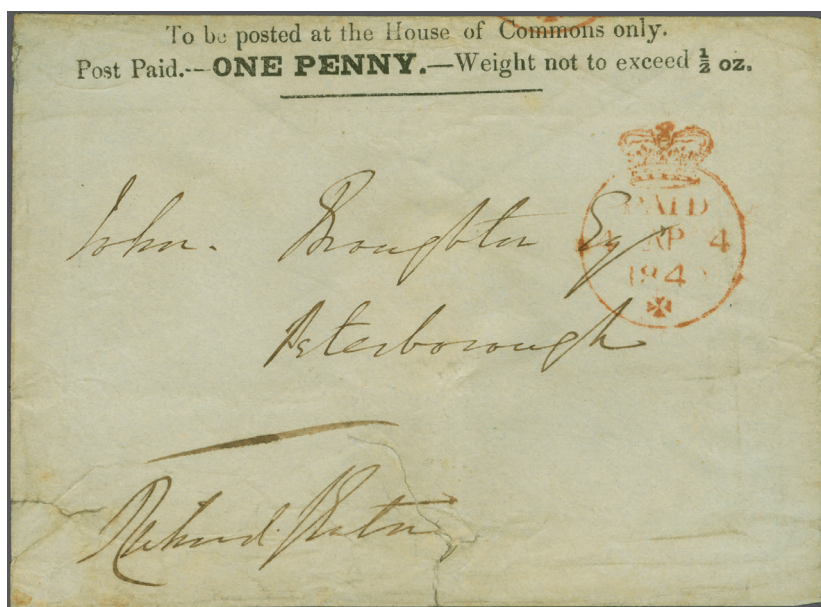 To be posted at the House of Commons only.
Post Paid.--ONE PENNY.—Weight not to exceed ½ oz.
PAID
AP 4
184
John. Broughton Esq
Peterborough
Richard